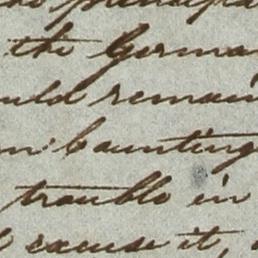 the principa
the Germa
uld remain
in bounting
trouble in
excuse it,